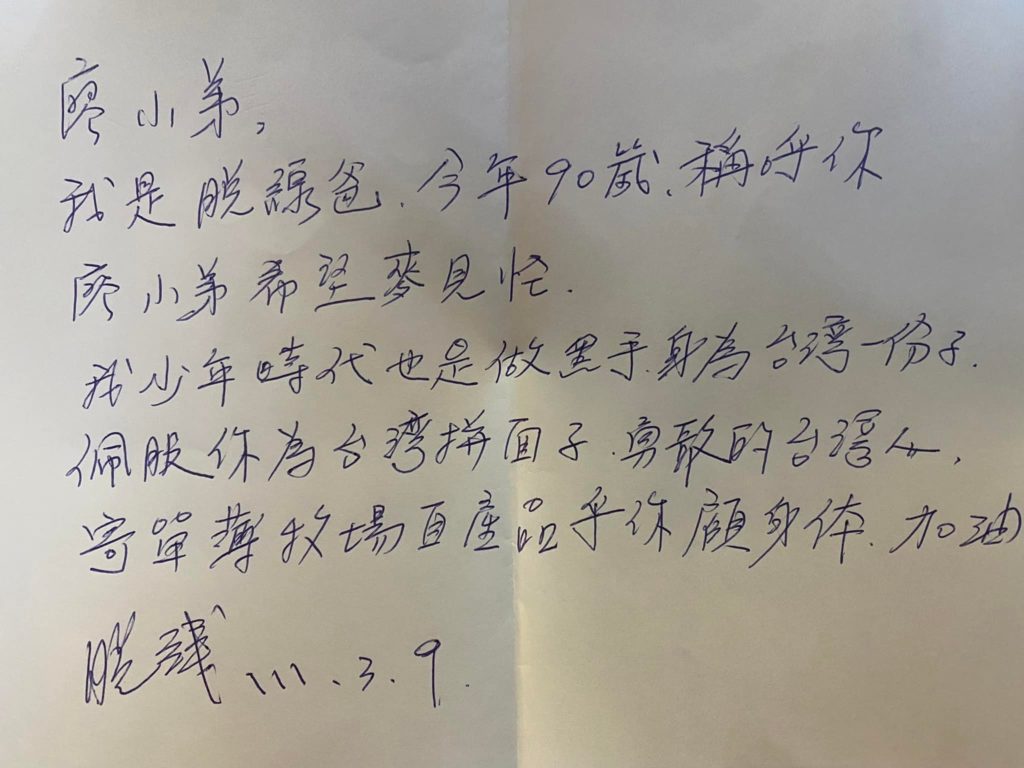 廖小弟,
我是脫線爸.今年90歲.稱呼你
廖小弟希望麥見怪.
我少年時代也是做黑手.身為台灣一份子.
佩服你為台灣拼面子.勇敢的台灣人,
寄單薄牧場自產品乎你顧身体.加油
脫線 111.3.9.